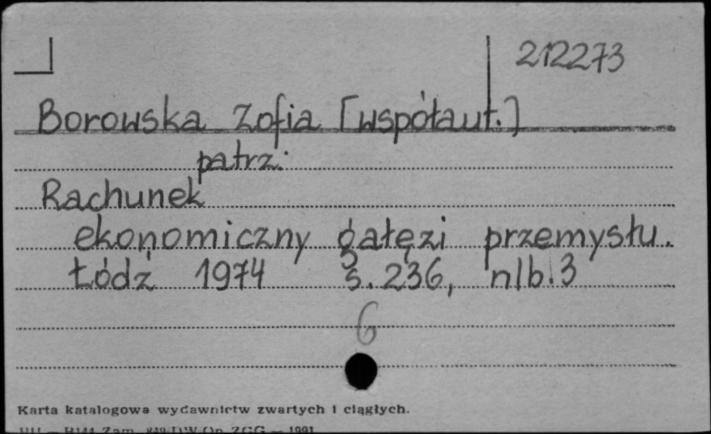 212273
Borowska Zofia [współaut.]
patrz:
Rachunek
ekonomiczny gałęzi przemysłu.
Łódź 1974 s. 236, nlb. 3
6
Karta katalogowa wydawnictw zwartych i ciągłych.
Zam. ZGG — 1991